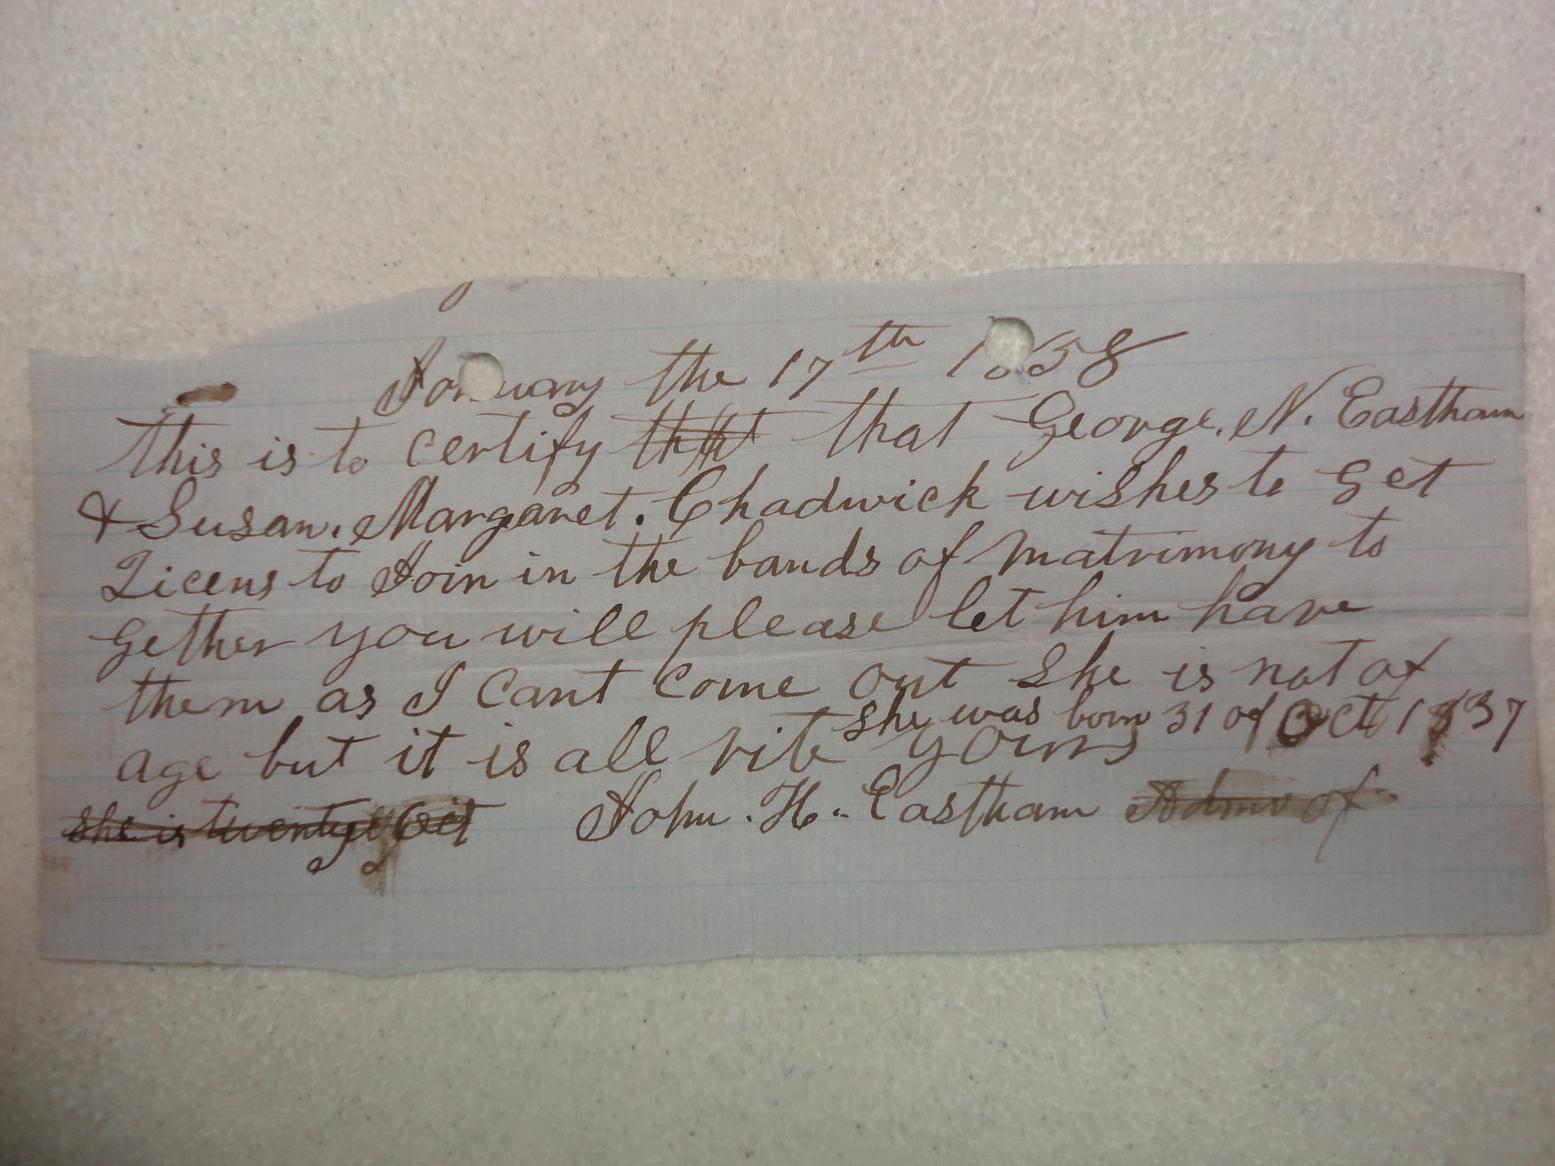 January the 17th 1858
this is to certify that that George. N. Eastham
& Susan. Margaret. Chadwick wishes to get
Licens to Join in the bands of matrimony to
gether you will please let him have
them as I cant come out She is not of
She was born 31 of Oct 1837
age but it is all rite yours
She is twenty John. H. Eastham Admr of